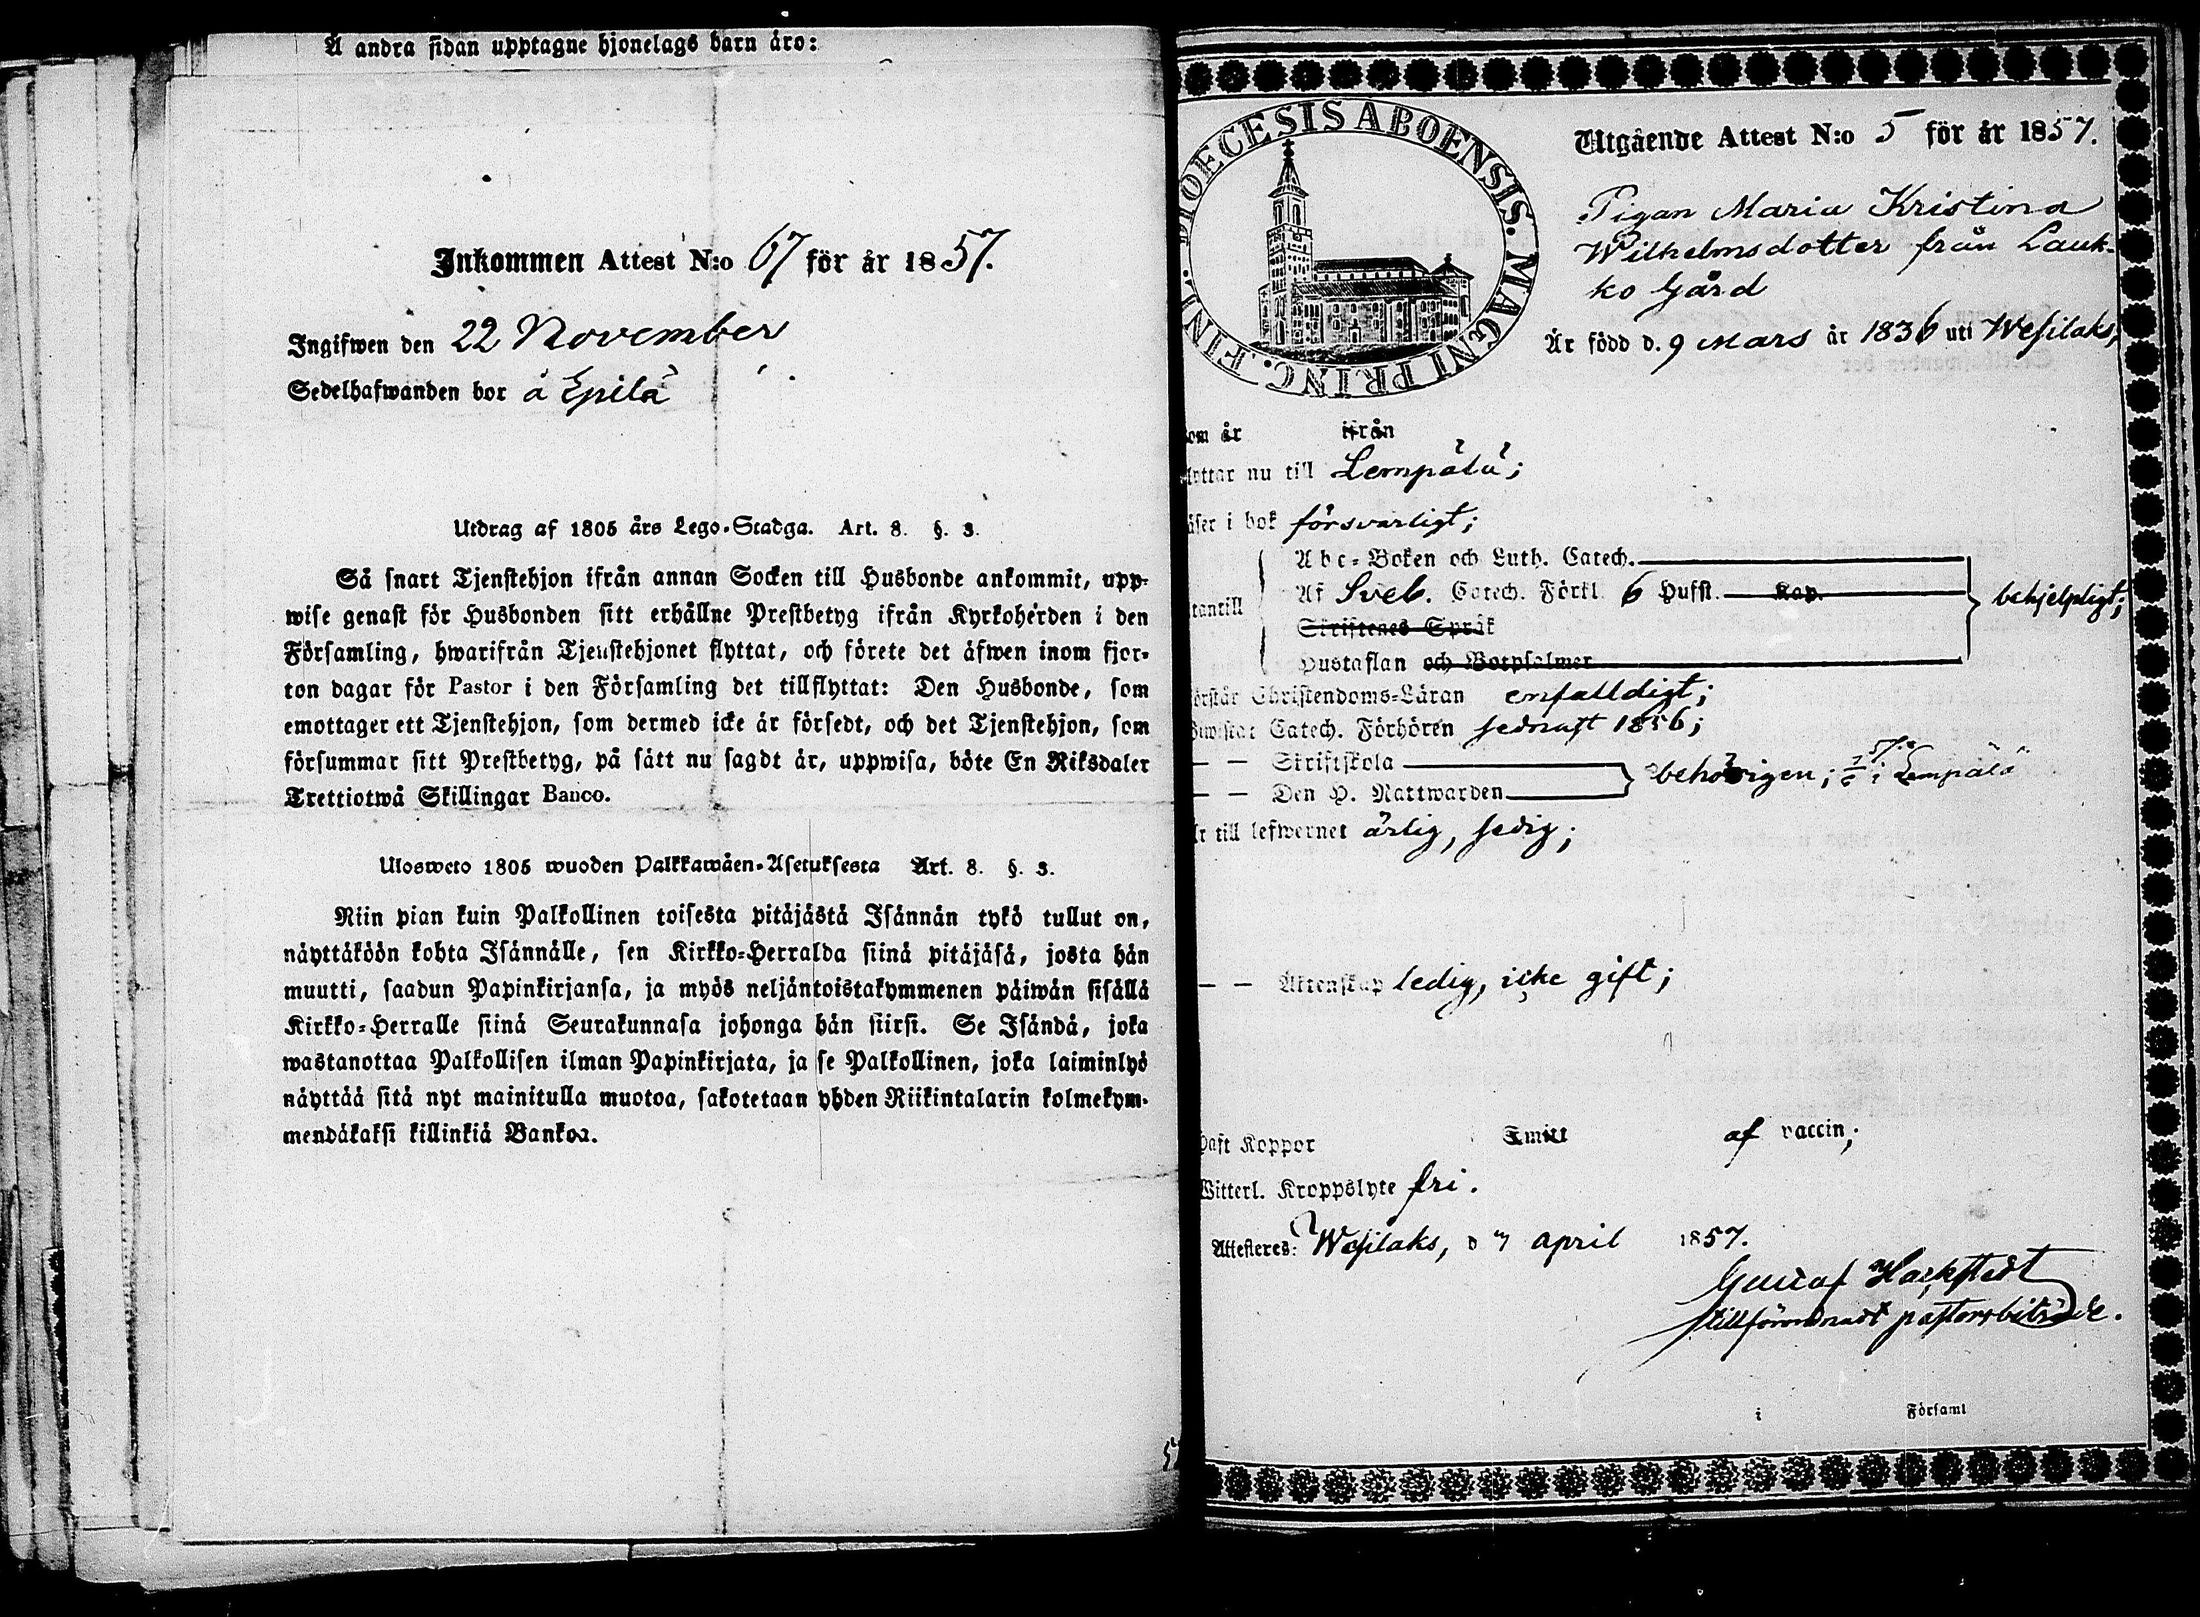 Å andra sidan upptagne hjonelags barn äro:
Inkommen Attest N:o 67 för år 1857.
Ingifwen den 22 November
Sedelhafwanden bor å Epilä
Utdrag af 1805 års Lego-Stadga. Art. 8. §. 3.
Så snart Tjenstehjon ifrån annan Socken till Husbonde ankommit, upp-
wise genast för Husbonden sitt erhållne Prestbetyg ifrån Kyrkohérden i den
Församling, hwarifrån Tjenstehjonet flyttat, och förete det äfwen inom fjor-
ton dagar för Pastor i den Församling det tillflyttat: Den Husbonde, som
emottager ett Tjenstehjon, som dermed icke är försedt, och det Tjenstehjon, som
försummar sitt Prestbetyg, på sätt nu sagdt är, uppwisa, böte En Riksdaler
Trettiotwå Skillingar Banco.
Ulosweto 1805 wuoden Palkkawäen-Asetuksesta Art. 8. §. 3.
Niin pian kuin Palkollinen toisesta pitäjästä Isännän tykö tullut on,
näyttäköön kohta Isännälle, sen Kirkko-Herralda siinä pitäjäsä, josta hän
muutti, saadun Papinkirjansa, ja myös neljäntoistakymmenen päiwän sisällä
Kirkko-Herralle siinä Seurakunnasa johonga hän siirsi. Se Isändä, joka
wastanottaa Palkollisen ilman Papinkirjata, ja se Palkollinen, joka laiminlyö
näyttää sitä nyt mainitulla muotoa, sakotetaan yhden Riikintalarin kolmekym-
mendäkaksi killinkiä Bankoa.
DIOECESIS ABOENSIS. MAGNI PRINC. FINL.
Utgående Attest N:o 5 för år 1857.
Pigan Maria Kristina
Wilhelmsdotter från Lauk-
ko Gård
Är född d. 9 Mars år 1836 uti Wesilaks,
om år ifrån
lyttar nu till Lempälä;
äser i bok försvarligt;
Abc-Boken och Luth. Catech.
tantill Af Sveb. Catech. Förkl. 6 Hufst. Kap. behjelpligt;
Skriftenes Språk
Hustaflan och Botpsalmer
örstår Christendoms-Läran enfaldigt;
Biwistat Catech. Förhören sednast 1856;
— — Skriftskola
— — Den H. Nattwarden behörigen; i Lempälä
är till lefwernet ärlig, sedig;
— — Äktenskap ledig, icke gift;
Haft Koppor Smitt af vaccin;
Witterl. Kroppslyte fri.
Attesteres: Wesilaks, d 7 April 1857.
Gustaf Hackstedt
tillförordnadt pastorsbiträde.
i Församl